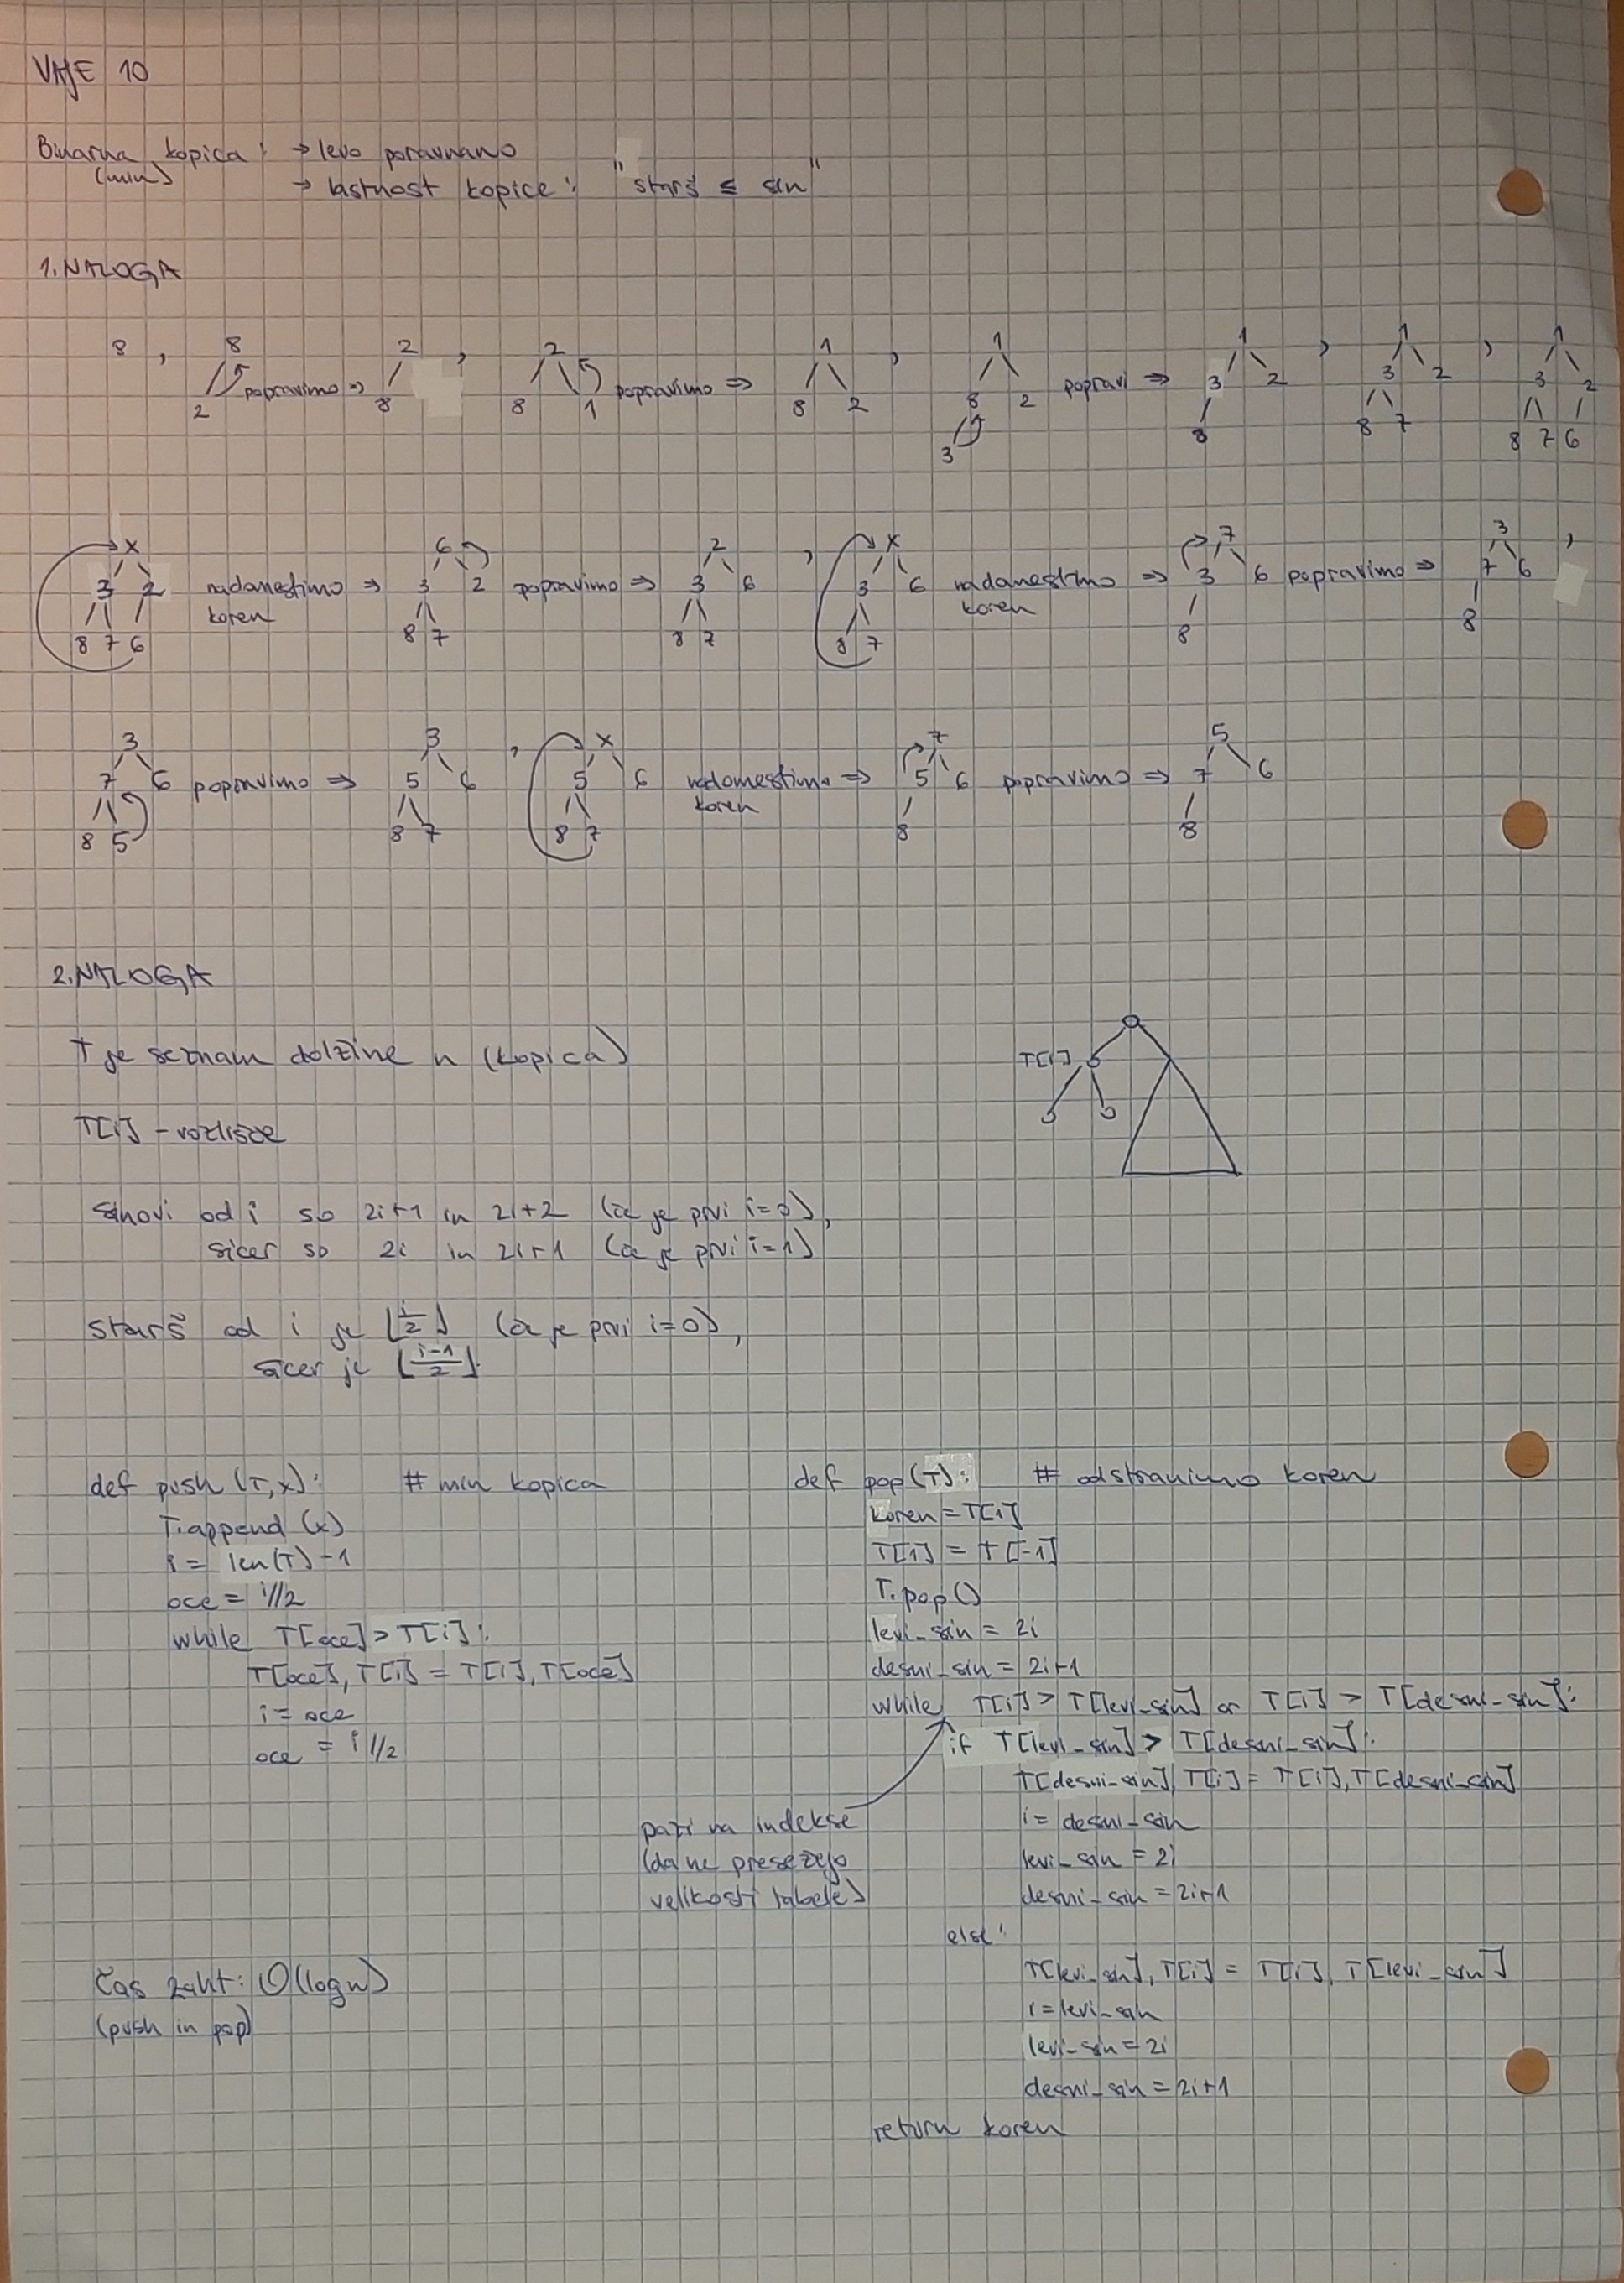 VAJE 10
Binarna kopica: → levo poravnano
(min)
→ lastnost kopice: "starš ≤ sin"
1. NALOGA
8 , 8 2 popravimo ⇒ 2 8 , 2 8 1 popravimo ⇒ 1 8 2 , 1 8 2 3 popravi ⇒ 1 3 2 8 , 1 3 2 8 7 , 1 3 2 8 7 6
x 3 2 8 7 6 nadomestimo koren ⇒ 6 3 2 8 7 popravimo ⇒ 2 3 6 8 7 , x 3 6 8 7 nadomestimo koren ⇒ 7 3 6 8 popravimo ⇒ 3 7 6 8 ,
3 7 6 8 5 popravimo ⇒ 3 5 6 8 7 , x 5 6 8 7 nadomestimo koren ⇒ 7 5 6 8 popravimo ⇒ 5 7 6 8
2. NALOGA
T je seznam dolžine n (kopica)
T[i]
T[i] - vozlišče
sinovi od i so 2i+1 in 2i+2 (če je prvi i=0),
sicer so 2i in 2i+1 (če je prvi i=1)
starš od i je ⌊i/2⌋ (če je prvi i=0),
sicer je ⌊(i-1)/2⌋.
def push (T,x): # min kopica
T.append (x)
i = len(T) - 1
oce = i//2
while T[oce] > T[i]:
T[oce], T[i] = T[i], T[oce]
i = oce
oce = i//2
def pop(T): # odstranimo koren
koren = T[1]
T[1] = T[-1]
T.pop()
levi_sin = 2i
desni_sin = 2i+1
while T[i] > T[levi_sin] or T[i] > T[desni_sin]:
if T[levi_sin] > T[desni_sin]:
T[desni_sin], T[i] = T[i], T[desni_sin]
i = desni_sin
levi_sin = 2i
desni_sin = 2i+1
else:
T[levi_sin], T[i] = T[i], T[levi_sin]
i = levi_sin
levi_sin = 2i
desni_sin = 2i+1
return koren
pazi na indekse
(da ne presežejo
velikosti tabele)
Čas. zaht: O(log n)
(push in pop)